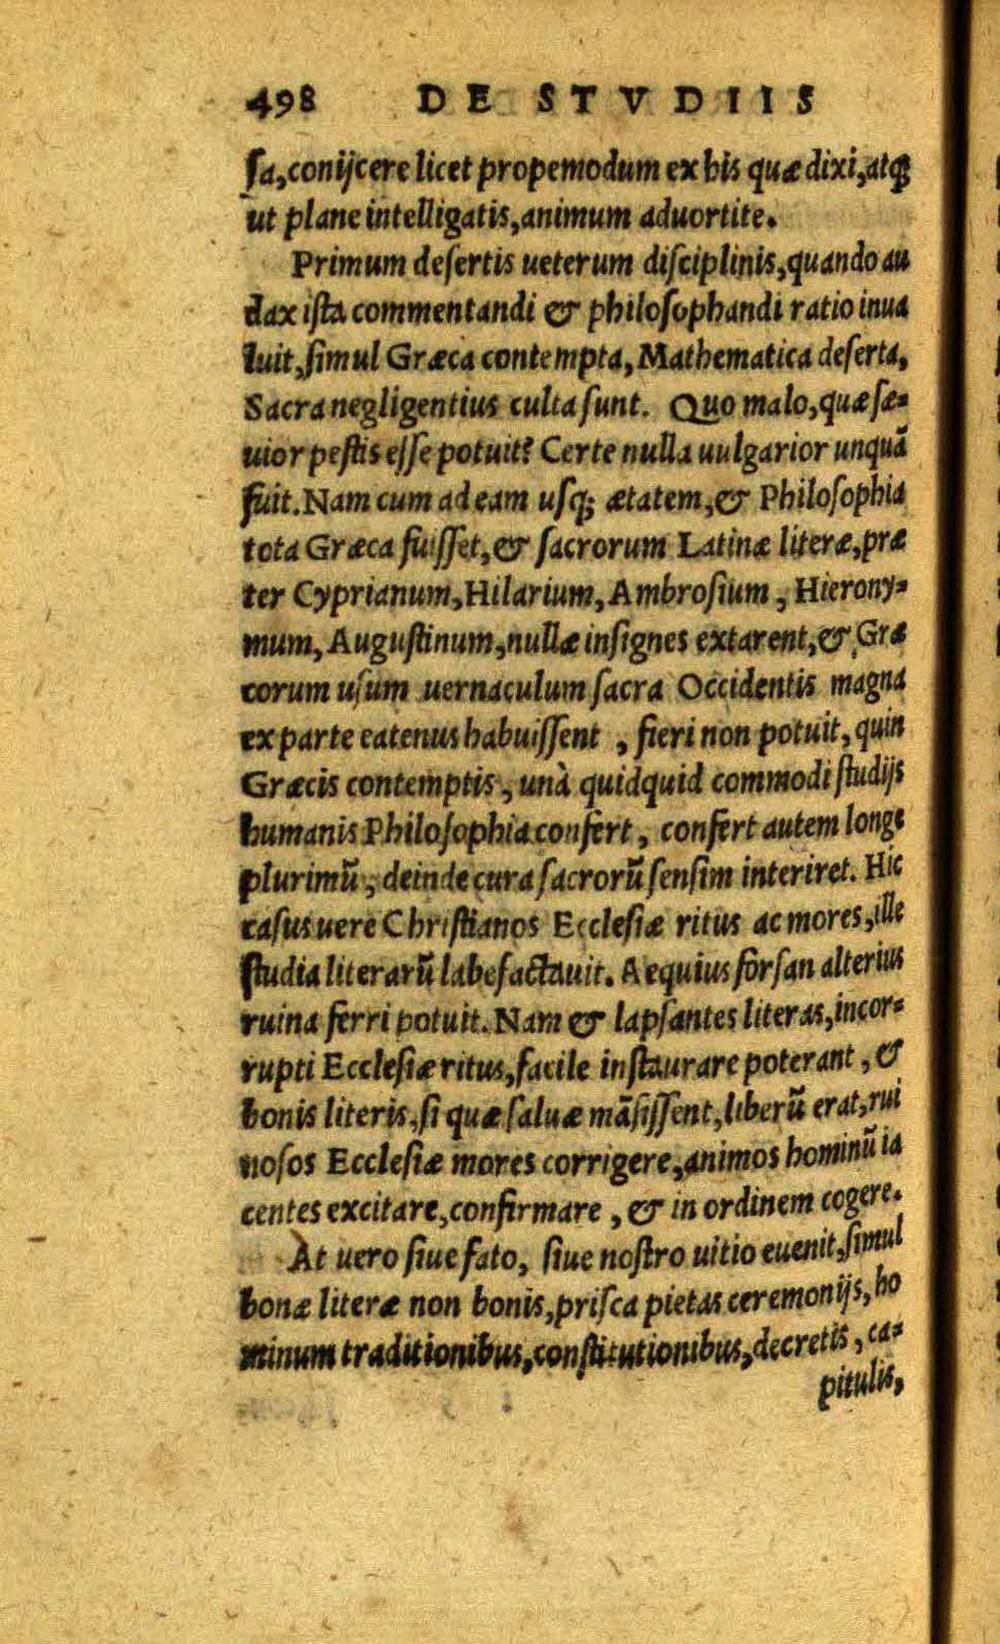 498 DE STVDIIS
ſa,conijcere licet propemodum ex his quæ dixi,atq;
ut plane intelligatis,animum aduortite.
Primum deſertis ueterum diſciplinis,quando au
dax iſta commentandi & philoſophandi ratio inua
luit,ſimul Græca contempta, Mathematica deſerta,
Sacra negligentius culta ſunt. Quo malo,quæ ſæ-
uior peſtis eſſe potuit? Certe nulla uulgarior unquã
fuit. Nam cum ad eam uſq; ætatem,& Philoſophia
tota Græca fuiſſet,& ſacrorum Latinæ literæ,præ
ter Cyprianum,Hilarium,Ambroſium, Hierony-
mum, Auguſtinum,nullæ inſignes extarent,& Græ
corum uſum uernaculum ſacra Occidentis magna
ex parte eatenus habuiſſent , fieri non potuit, quin
Græcis contemptis, unà quidquid commodi ſtudijs
humanis Philoſophia confert, confert autem longe
plurimũ, deinde cura ſacrorũ ſenſim interiret. Hic
caſus uere Chriſtianos Eccleſiæ ritus ac mores,ille
ſtudia literarũ labefactauit. Aequius forſan alterius
ruina ferri potuit. Nam & lapſantes literas,incor-
rupti Eccleſiæ ritus,facile inſtaurare poterant, &
bonis literis,ſi quæ ſaluæ mãſiſſent,liberũ erat,rui
noſos Eccleſiæ mores corrigere,animos hominũ ia
centes excitare,confirmare, & in ordinem cogere.
At uero ſiue fato, ſiue noſtro uitio euenit,ſimul
bonæ literæ non bonis,priſca pietas ceremonijs,ho
minum traditionibus,conſtitutionibus,decretis, ca-
pitulis,